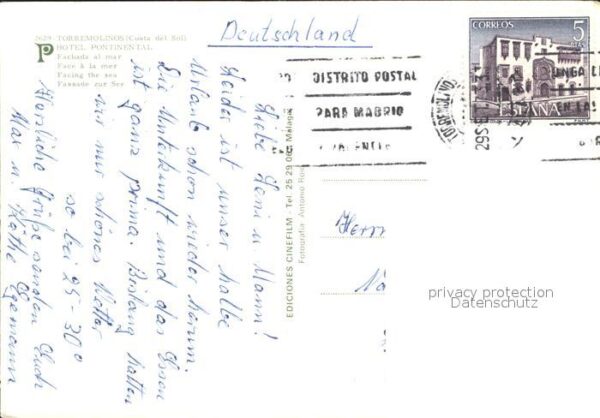 2629 - TORREMOLINOS (Costa del Sol)
HOTEL PONTINENTAL
Fachada al mar
Face à la mer
Facing the sea
Fassade zur See
Deutschland
CORREOS
5
PTAS
ESPAÑA
DISTRITO POSTAL
PARA MADRID
VALENCIA
29 SE
Liebe Leni u. Mann!
Leider ist unser halbe
Urlaub schon wieder herum.
Die Unterkunft und das Essen
ist ganz prima. Bislang hatten
wir nur schönes Wetter
so bei 25-30°
Herzliche Grüße senden Euch
Max u. Käthe
EDICIONES CINEFILM - Tel. 25 29 06 Malaga
Fotografia: Antonio
Herrn
privacy protection
Datenschutz